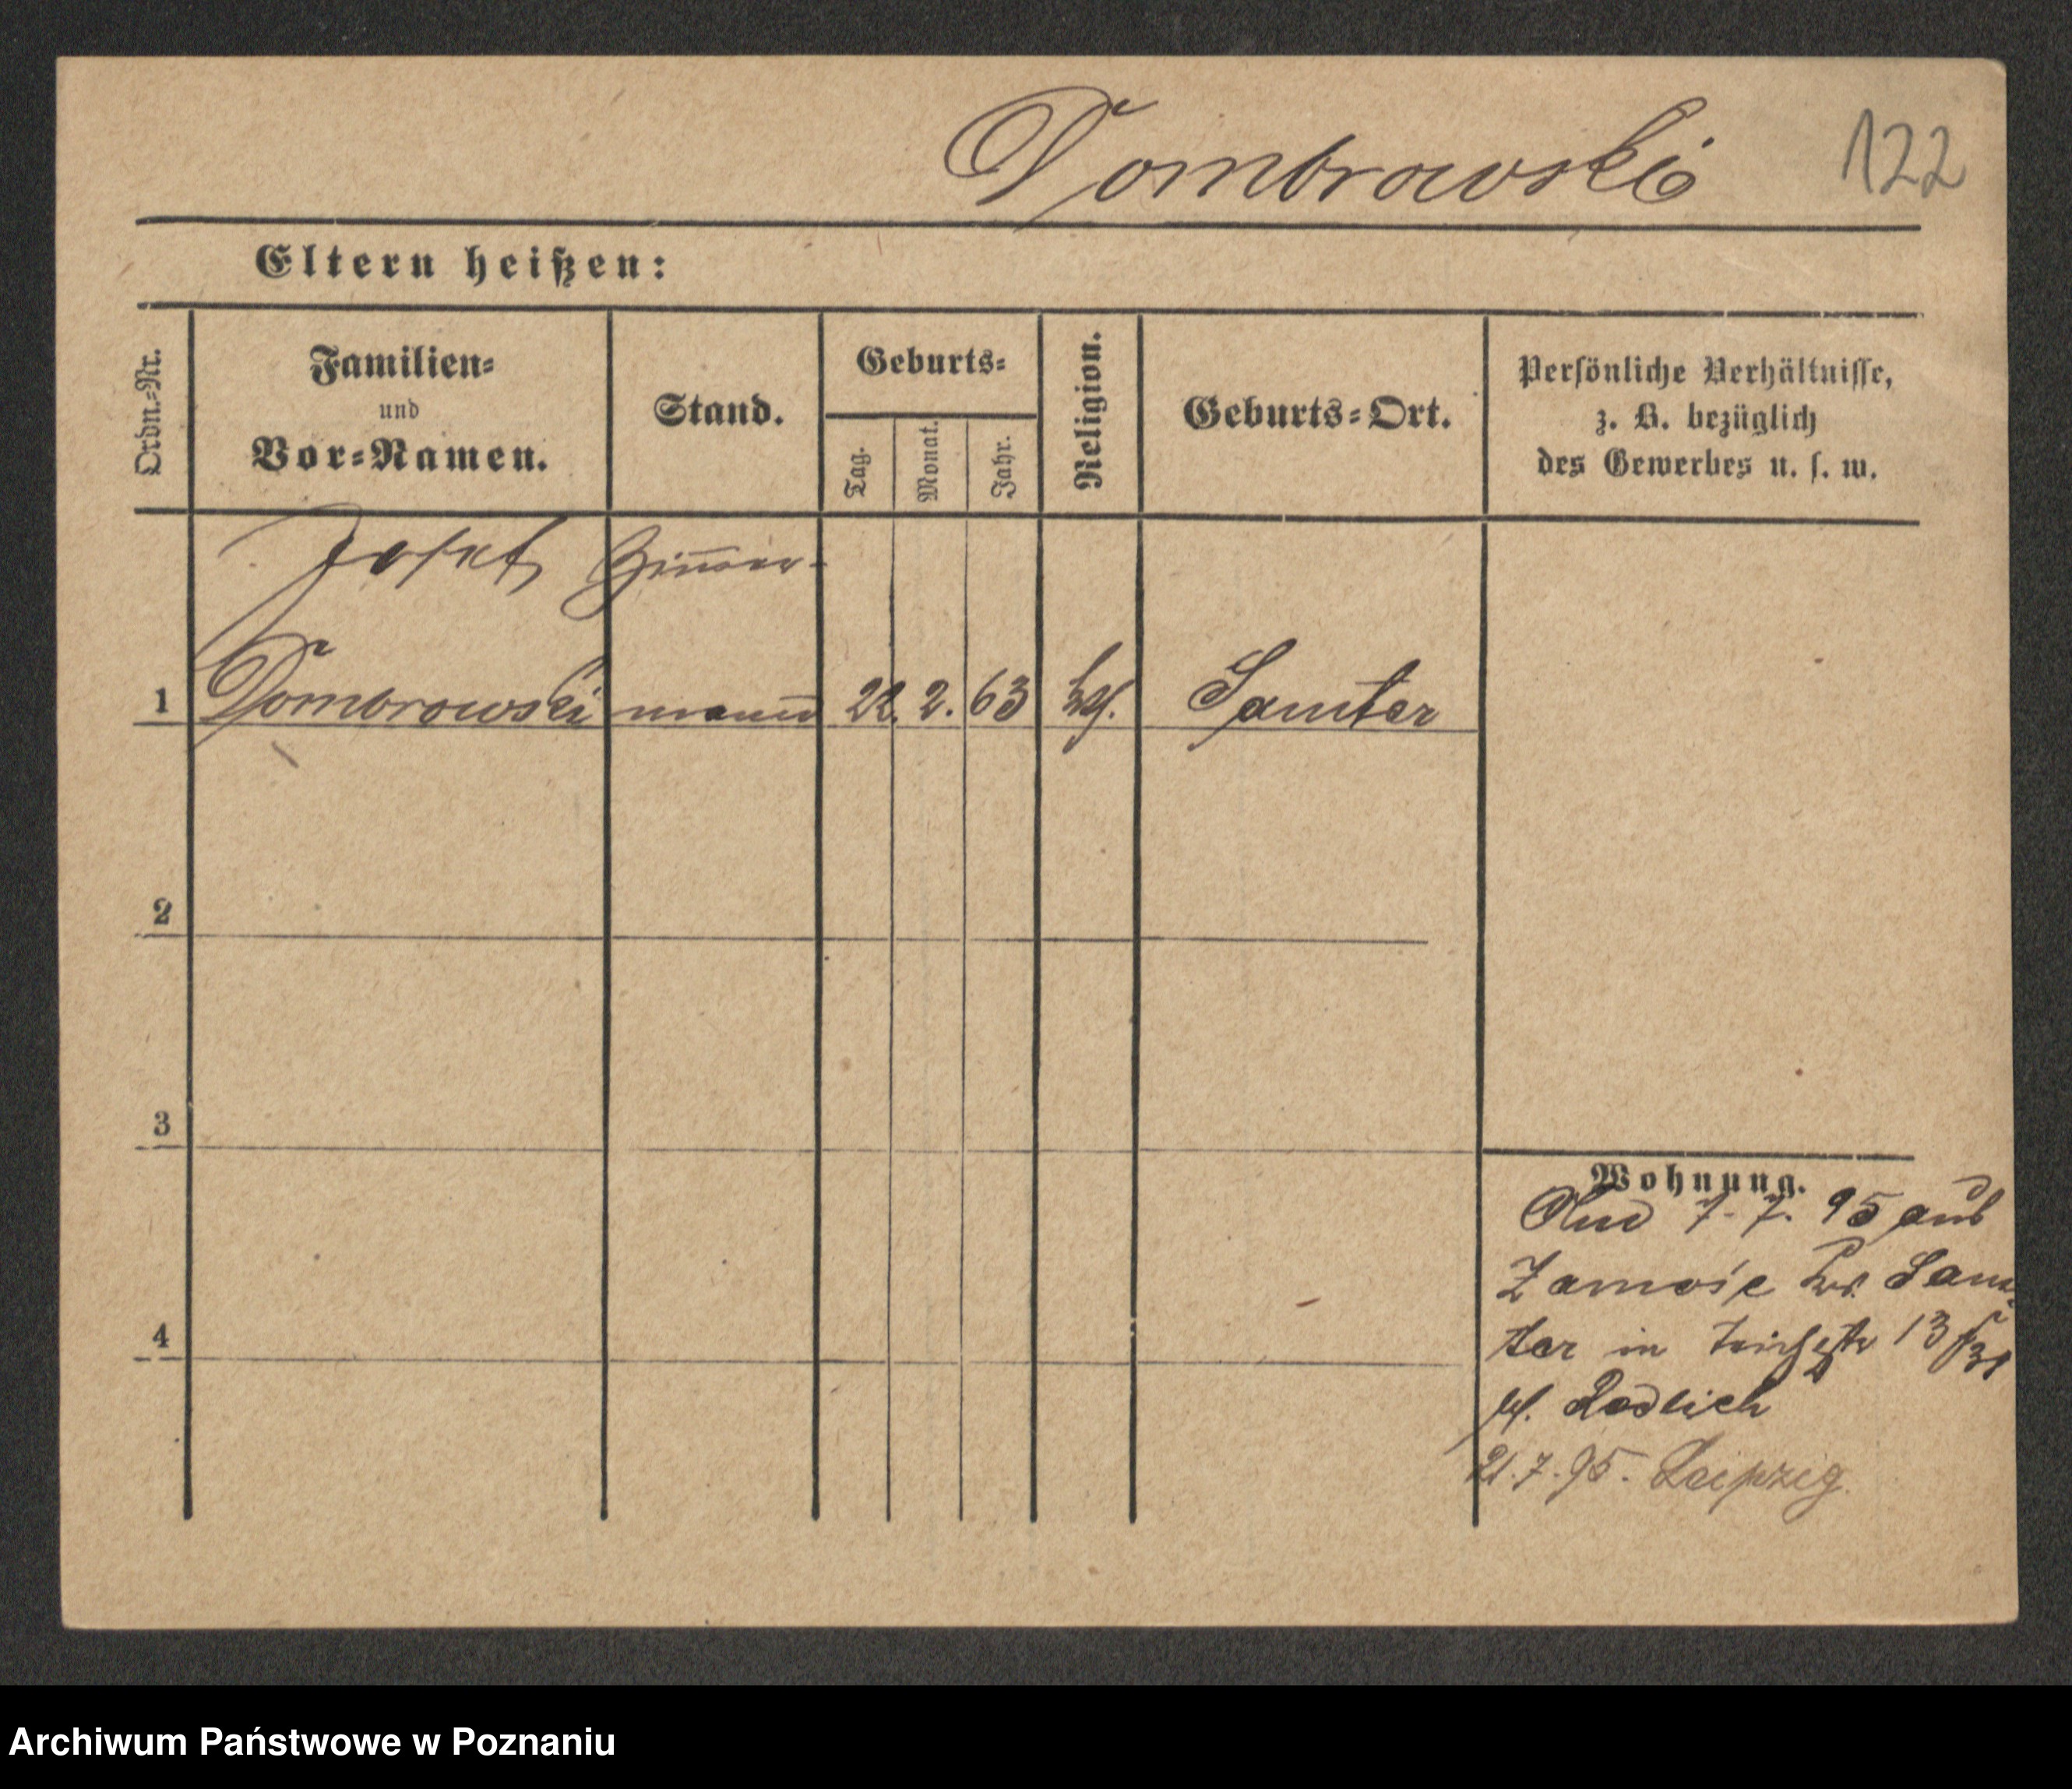 Dombrowski 122
Eltern heißen:
Ordn.-Nr.
Familien-
und
Vor-Namen.
Stand.
Geburts-
Tag.
Monat.
Jahr.
Religion.
Geburts-Ort.
Persönliche Verhältnisse,
z. B. bezüglich
des Gewerbes u. s. w.
Josef Zimer-
1 Dombrowski mann 22. 2. 63 Samter
2
3
4
Wohnung.
7. 7. 95 aus
Zamość Kr. Sam-
ter in 13
21.7.95. Leipzig.
Archiwum Państwowe w Poznaniu